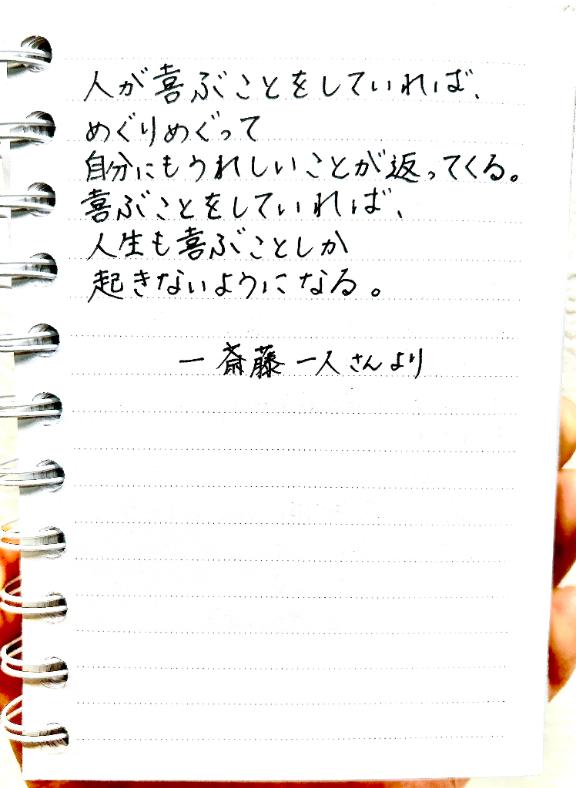 人が喜ぶことをしていれば、
めぐりめぐって
自分にもうれしいことが返ってくる。
喜ぶことをしていれば、
人生も喜ぶことしか
起きないようになる。
― 斎藤一人さんより